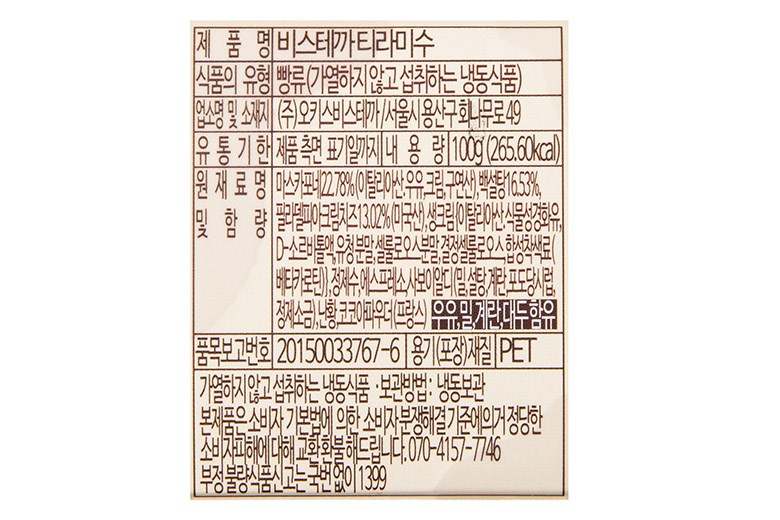 제 품 명 비스테까 티라미수
식품의 유형 빵류(가열하지 않고 섭취하는 냉동식품)
업소명 및 소재지 (주)오키스비스테까/서울시 용산구 회나무로 49
유 통 기 한 제품 측면 표기일까지 내 용 량 100g (265.60kcal)
원 재 료 명 마스카포네22.78%(이탈리아산,우유,크림,구연산),백설탕16.53%,
및 함 량 필라델피아크림치즈13.02%(미국산),생크림(이탈리아산,식물성경화유,
D-소르비톨액,유청분말,셀룰로오스분말,결정셀룰로오스,합성착색료(
베타카로틴)),정제수,에스프레소,사보이알디(밀,설탕,계란,포도당시럽,
정제소금),난황,코코아파우더(프랑스) 우유,밀,계란,대두 함유
품목보고번호 20150033767-6 용기(포장)재질 PET
가열하지 않고 섭취하는 냉동식품 ·보관방법: 냉동보관
본제품은 소비자 기본법에 의한 소비자 분쟁해결 기준에 의거 정당한
소비자피해에 대해 교환 환불 해드립니다. 070-4157-7746
부정 불량식품신고는 국번 없이 1399